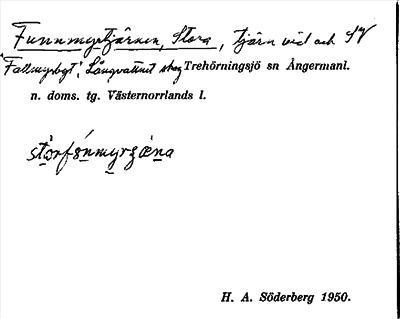 Funnmyrtjärnen, Stora, tjärn vid och SV
"Fallmyrbygt", Långvattnet skog Trehörningsjö sn Ångermanl.
n. doms. tg. Västernorrlands l.
H. A. Söderberg 1950.